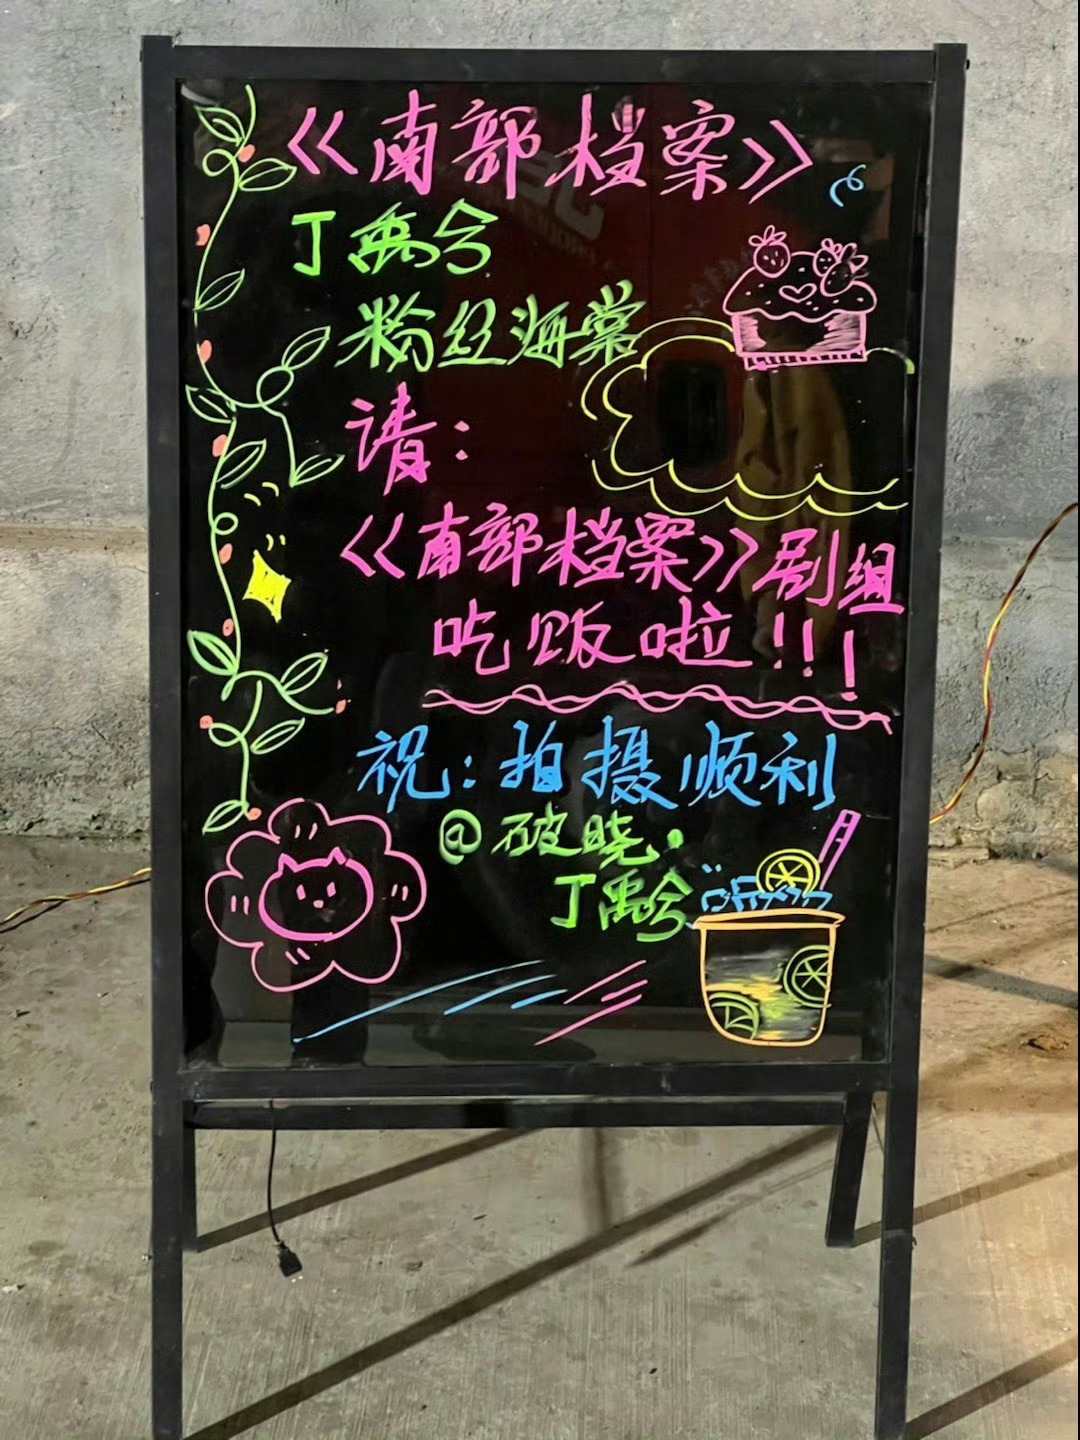 《南部档案》
丁禹兮
粉丝海棠
请：
《南部档案》剧组
吃饭啦!!!
祝：拍摄顺利
@破晓·
丁禹兮